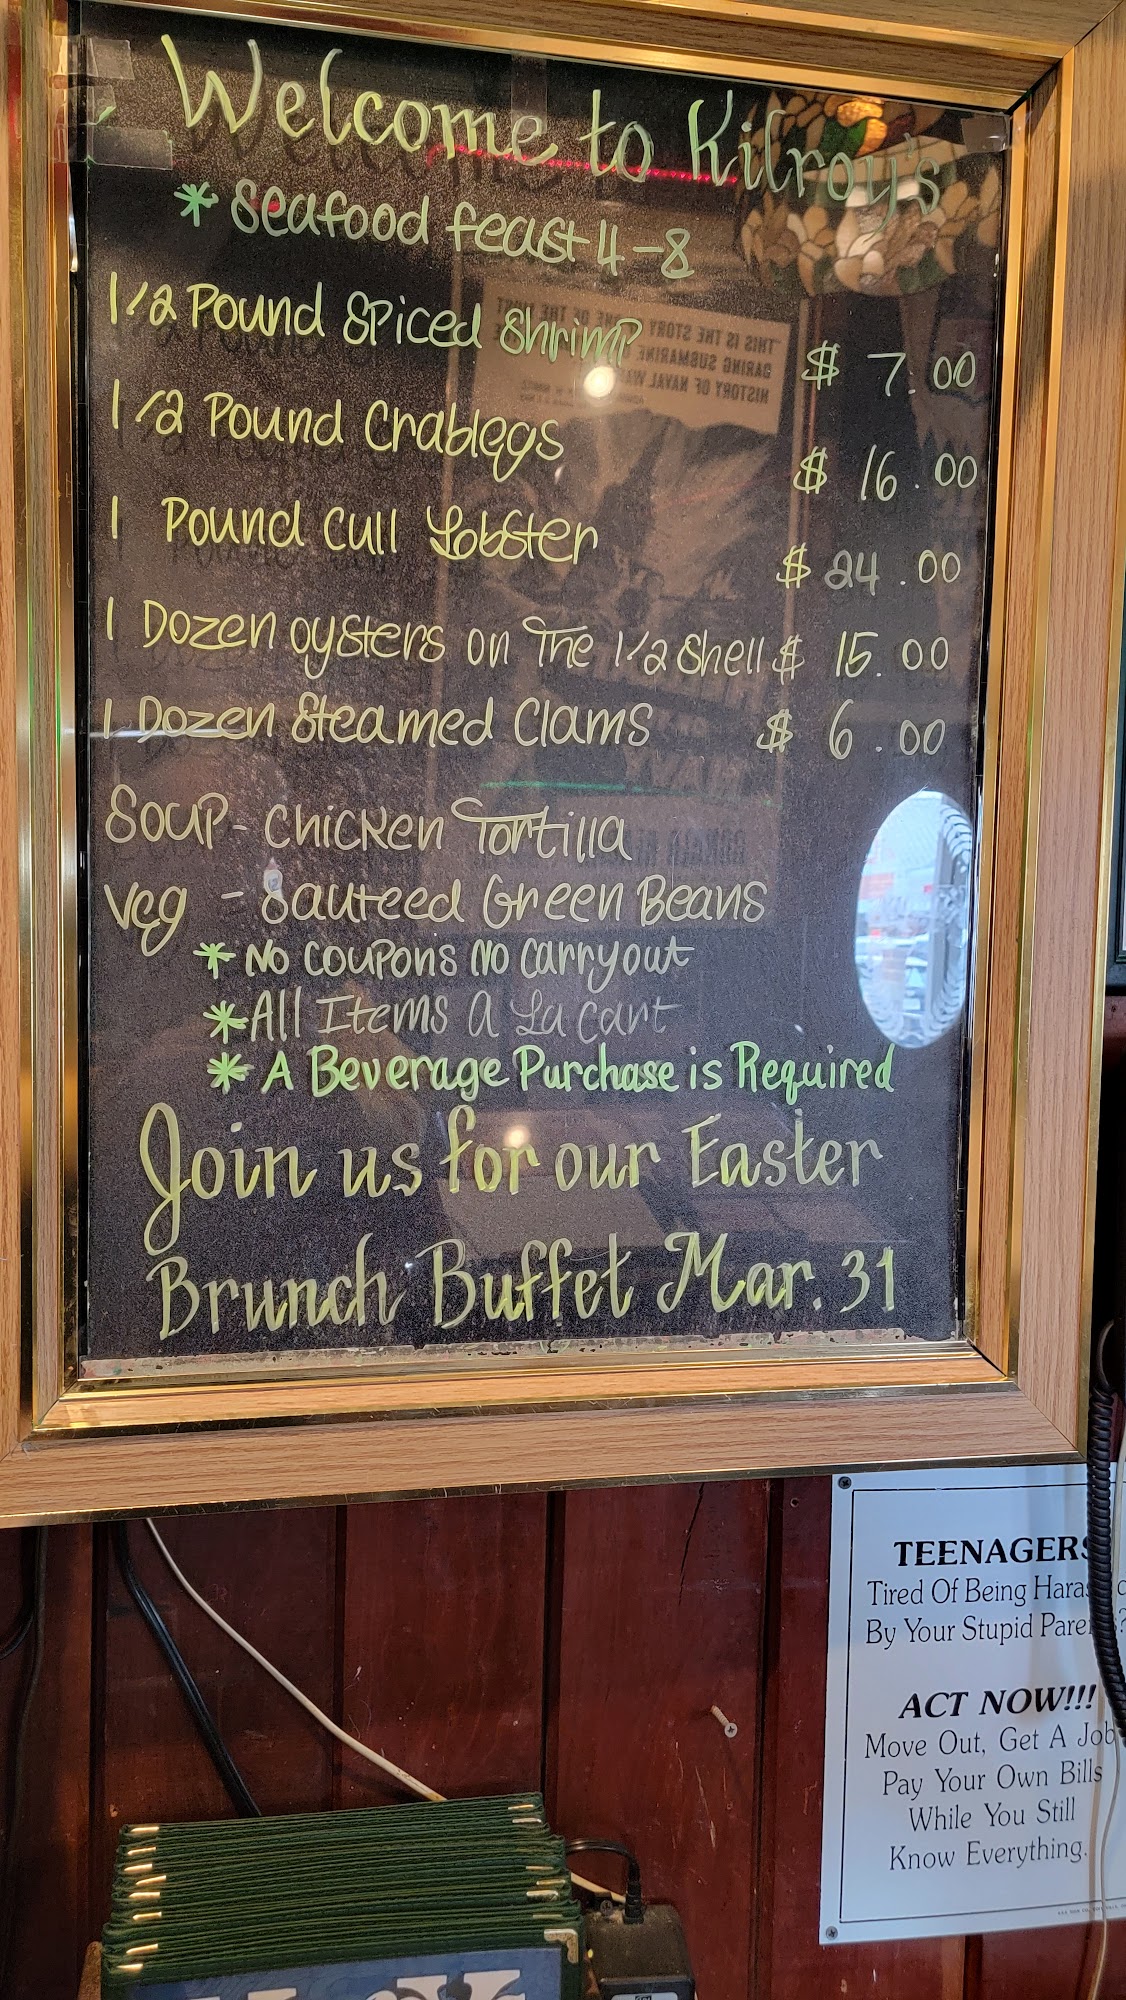 Welcome to Kilroy's
* Seafood feast 4-8
1/2 Pound Spiced Shrimp $ 7.00
1/2 Pound Crablegs $ 16.00
1 Pound Cull Lobster $ 24.00
1 Dozen oysters on The 1/2 Shell $ 15.00
1 Dozen Steamed Clams $ 6.00
Soup - Chicken Tortilla
Veg - Sauteed Green Beans
* No Coupons No Carryout
* All Items A La Cart
* A Beverage Purchase is Required
Join us for our Easter
Brunch Buffet Mar. 31
TEENAGERS
Tired Of Being
By Your Stupid
ACT NOW!!!
Move Out, Get A Job
Pay Your Own Bills
While You Still
Know Everything.